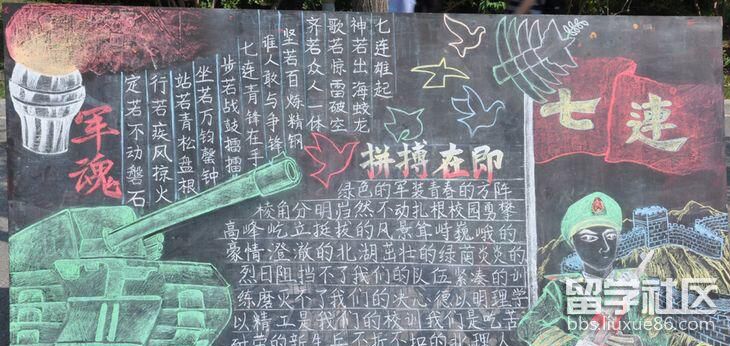 军魂
七连雄起
神若出海蛟龙
歌若惊雷破空
齐若众人一体
坚若百炼精钢
谁人敢与争锋
七连青锋在手
步若战鼓擂擂
坐若万钧磬钟
站若青松盘根
行若疾风掠火
定若不动磐石
拼搏在即
绿色的军装青春的方阵
棱角分明岿然不动扎根校园勇攀
高峰屹立挺拔的风景耸峙巍峨的
豪情澄澈的北湖茁壮的绿荫炎炎的
烈日阻挡不了我们的队伍紧凑的训
练磨灭不了我们的决心德以明理学
以精工是我们的校训我们是吃苦
耐劳的新生兵不折不扣的北理人
七連
留学社区
bbs.liuxue86.com